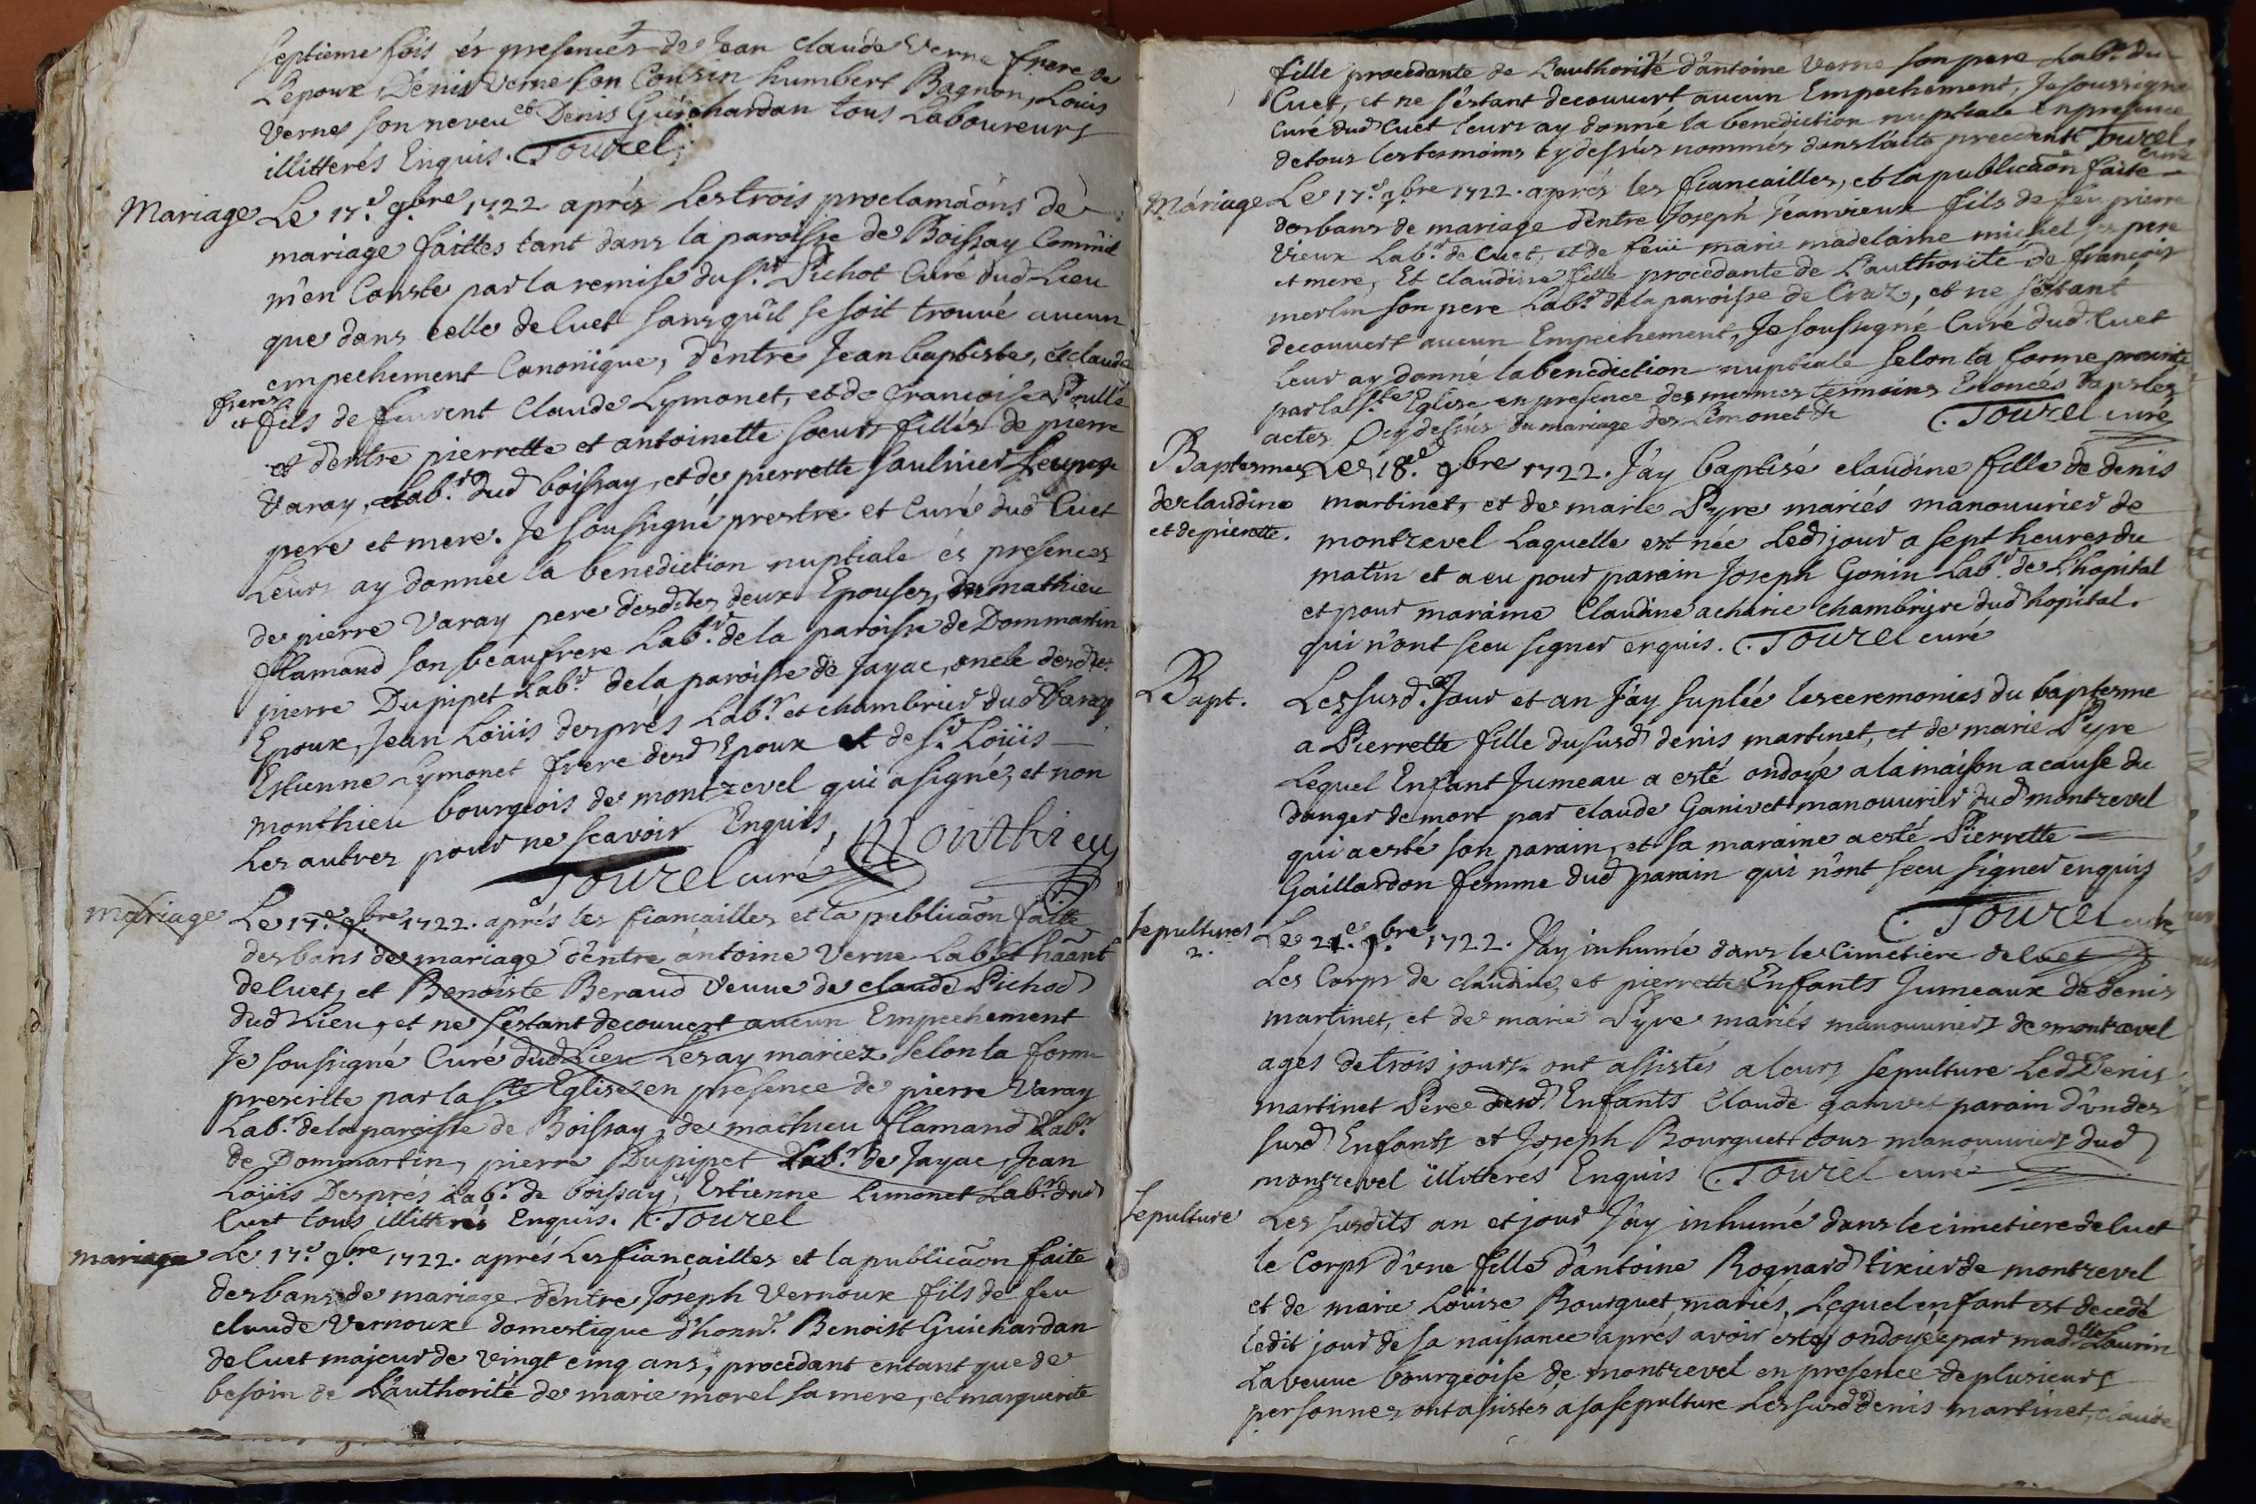 septieme fois és presences de Jean claude Verne frere de
L'epoux Denis Verne son Cousin humbert Bagnon, Louis
Vernes son neveu et Denis Guichardan tous Laboureurs
illitterés Enquis. C. Tourel
Mariage Le 17.e 9.bre 1722 aprés Les trois proclamãons de
mariage faittes tant dans la paroisse de Boissay Comm'il
m'en Conste par la remise du s.r Pichot Curé dud Lieu
que dans celle de Cuet sans qu'il se soit trouvé aucun
empechement Canonique, d'entre Jean baptiste, et claude
freres
et fils de feurent Claude Lymonet, et de francoise Poulle
et d'entre pierrette et antoinette soeurs filles de pierre
Varay, Lab.r dud boissay, et de pierrette saulnier Leurs
pere et mere. Je soussigné prestre et Curé dud Cuet
Leurs ay donnée la benediction nuptiale és presences
de pierre Varay pere desdites deux Epouses, de mathieu
flamand son beaufrere Lab.r de la paroisse de Dommartin
pierre Dupipet Lab.r de la paroisse de Jayac, oncle desdtes
Epoux, Jean Loüis després Lab.r et chambrier dud Varay
Estienne Lymonet frere desd Epoux et de s.r Loüis
monthieu bourgeois de montrevel qui a signé, et non
Les autres pour ne scavoir Enquis, Monthieu
Tourel curé
mariage Le 17.e 9.bre 1722. aprés les fiancailles et la publicãon faitte
des bans de mariage d'entre antoine Verne Lab.r et hãant
de Cuet, et Benoiste Beraud veuve de claude Pichod
dud Lieu, et ne s'éstant decouvert aucun Empechement
Je soussigné Curé dud Lieu Les ay mariez selon la forme
prescritte par la s.te Eglise en presence de pierre Varay
Lab.r de la paroisse de Boissay, de mathieu flamand Lab.r
de Dommartin, pierre Dupipet Lab.r de Jayac, Jean
Loüis Desprès Lab.r de boissay, Estienne Limonet Lab.r dud
Cuet tous illitterés Enquis. C. Tourel
mariage Le 17.e 9.bre 1722. aprés Les fiançailles et la publicãon faite
des bans de mariage d'entre Joseph Vernoux fils de feu
claude Vernoux domestique d'honn.e Benoist Guichardan
de Cuet majeur de vingt cinq ans, procedant entant que de
besoin de L'authorité de marie morel sa mere, et marguerite
fille procedante de L'authorité d'antoine Verne son pere Lab.r du
Cuet, et ne s'éstant decouvert aucun Empechement, Je soussigné
Curé dud Cuet leurs ay donné la benediction nuptiale En presence
de tous les temoins cy dessus nommés dans l'acte precedent Tourel
curé
Mariage Le 17.e 9.bre 1722. aprés les fiancailles, et la publicãon faite
des bans de mariage d'entre Joseph Jeanvieux fils de feu pierre
Vieux Lab.r de Cuet, et de feüe marie madelaine michel ses pere
et mere, Et claudine fille procedante de L'authorité de françois
merlin son pere Lab.r de la paroisse de Craz, et ne s'éstant
decouvert aucun Empechement, Je soussigné Curé dud Cuet
Leur ay donné la benediction nuptiale selon la forme prescritte
par la s.te Eglise en presence des mesmes temoins Enoncés dans les
actes cy dessus du mariage des Limonet C. Tourel curé
Baptesmes Les 18.e 9.bre 1722. J'ay baptisé claudine fille de denis
de claudine martinet, et de marie Pyre mariés manouvrier de
et de pierette. montrevel Laquelle est née Led jour a sept heures du
matin et a eu pour parain Joseph Gonin Lab.r de L'hopital
et pour maraine Claudine acharie chambriere dud hopital.
qui n'ont sceu signer enquis. C. Tourel curé
Bapt. Les susd. Jour et an J'ay suplée les ceremonies du baptesme
a Pierrette fille du susd denis martinet, et de marie Pyre
Lequel Enfant Jumeau a esté ondoyé a la maison a cause du
danger de mort par claude Ganivet manouvrier dud montrevel
qui a esté son parain, et sa maraine a esté Pierrette
Gaillardon femme dud parain qui n'ont sceu signer enquis
C. Tourel curé
Sepultures Le 21.e 9.bre 1722. J'ay inhumé dans le Cimetiere de Cuet
2. Les Corps de claudine, et pierrette Enfants Jumeaux de denis
martinet, et de marie Pyre mariés manouvriers de montrevel
agés de trois jours. ont assistés a leurs sepulture Led Denis
martinet Pere desd Enfants Claude ganivet parain d'un des
susd Enfants et Joseph Bourguet tous manouvriers dud
montrevel illitterés Enquis C. Tourel curé
Sepulture Les susdits an et jour J'ay inhumé dans le cimetiere de Cuet
le Corps d'une fille d'antoine Rognard tixier de montrevel
et de marie Loüise Bourguet mariés. Lequel enfant est decedé
ledit jour de sa naissance aprés avoir esté ondoyée par mad.lle Laurin
La veuve bourgeoise de montrevel en presence de plusieurs
personnes ont assistés a sa sepulture Les susd denis martinet, claude